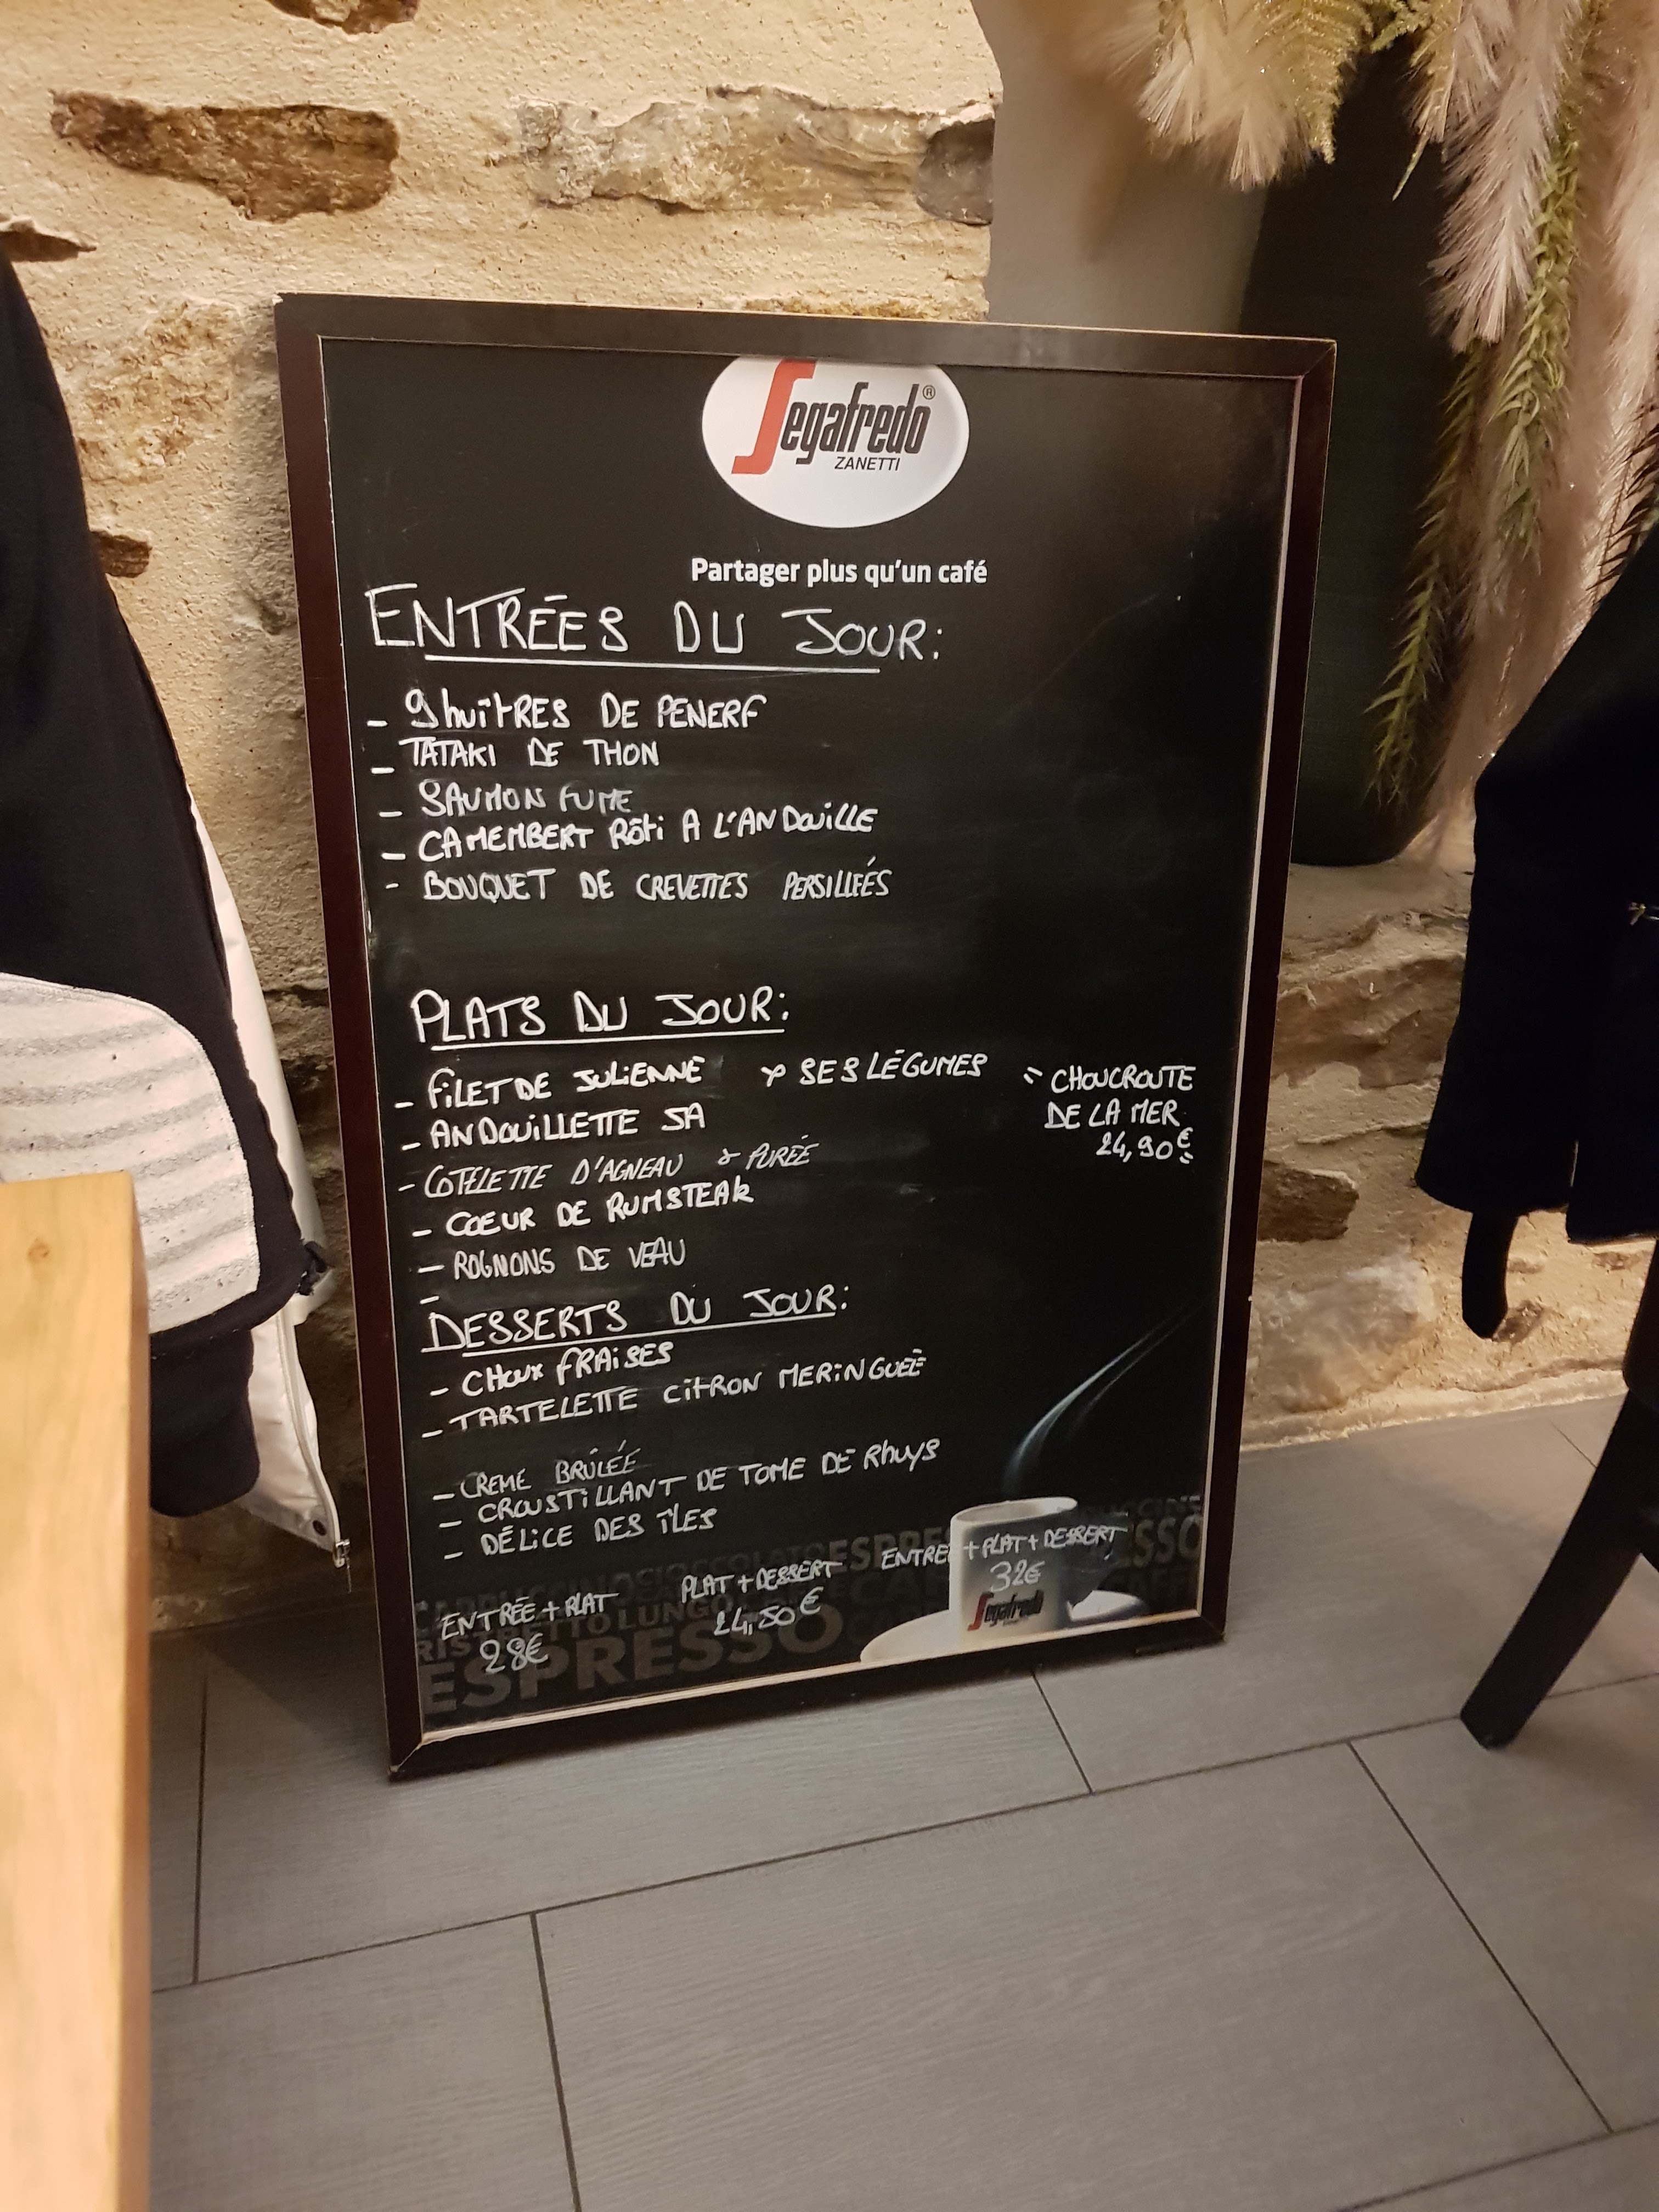 Segafredo®
ZANETTI
Partager plus qu'un café
ENTRÉES DU JOUR:
- 9 huîtRES DE PENERF
- TATAKI DE THON
- SAUMON FUME
- CAMEMBERT Rôti A L'ANDOUiLLE
- BOUQUET DE CREVETTES PERSILLÉES
PLATS DU JOUR:
- FiLET DE JULIENNE & SES LÉGUMES
- ANDOUiLLETTE 5A
- COTELETTE D'AGNEAU & PURÉE
- COEUR DE RUMSTEAK
- ROGNONS DE VEAU
-
= CHOUCROUTE
DE LA MER
24,90€=
DESSERTS DU JOUR:
- CHOUX FRAiSES
- TARTELETTE CiTRON MERiNGUÉE
- CREME BRÛLÉE
- CROUSTiLLANT DE TOME DE Rhuys
- DÉLiCE DES ÎLES
ENTRÉE + PLAT
28€
PLAT + DESSERT
24,50€
ENTREE + PLAT + DESSERT
32€
Segafredo
RISTRETTO LUNGO
ESPRESSO